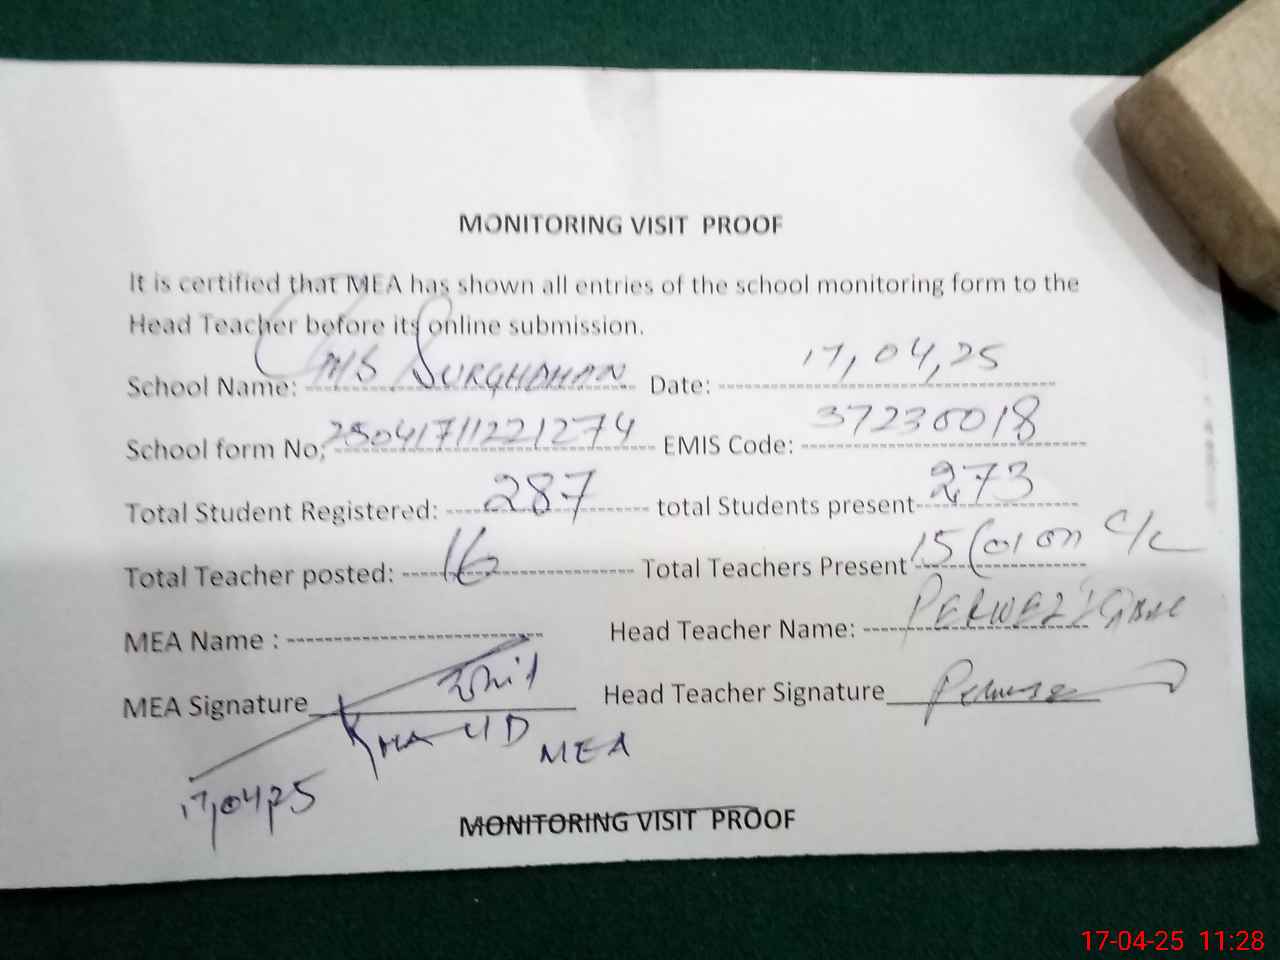 MONITORING VISIT PROOF
It is certified that MEA has shown all entries of the school monitoring form to the
Head Teacher before its online submission.
School Name: M/S Date: 17,04,25
School form No; EMIS Code: 37230018
Total Student Registered: 287 total Students present 273
Total Teacher posted: 16 Total Teachers Present 15 (01 on C/L
MEA Name : Head Teacher Name: PERWEZ
MEA Signature Head Teacher Signature
MEA
17,04,25
MONITORING VISIT PROOF
17-04-25 11:28